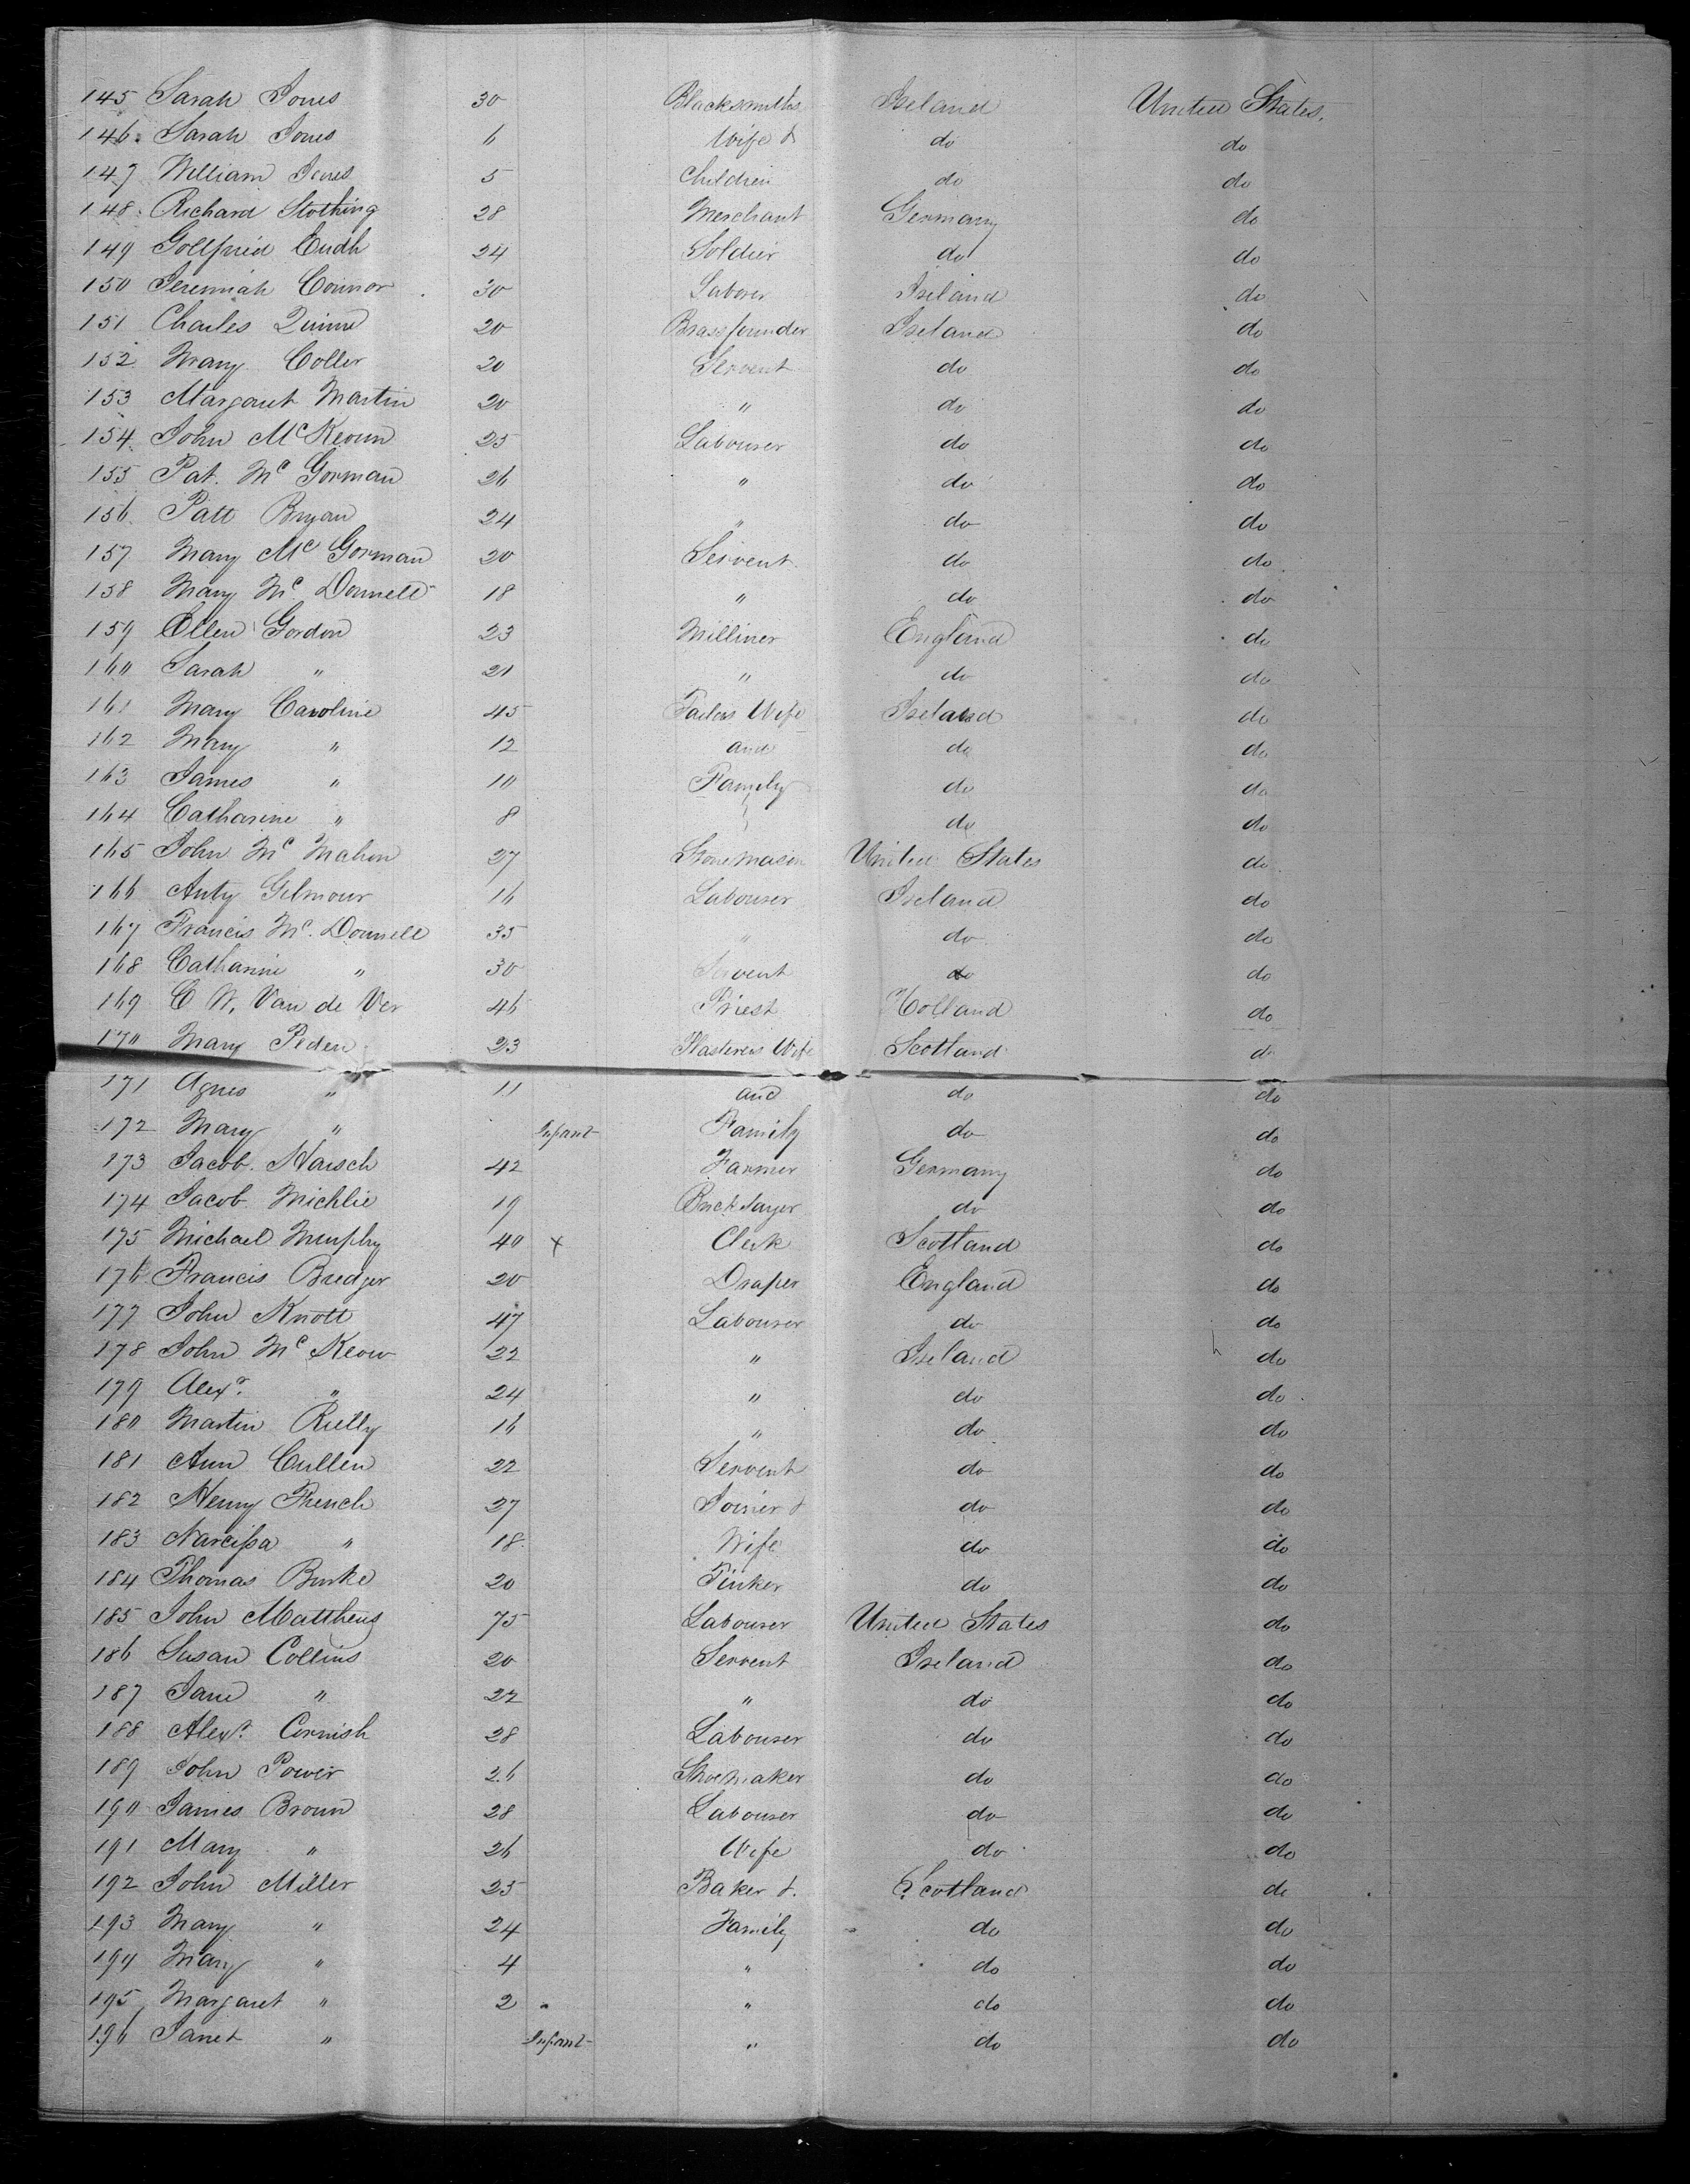 145 Sarah Jones 30 Blacksmiths Ireland United States.
146 Sarah Jones 6 Wife & do do
147 William Jones 5 Children do do
148 Richard Stothing 28 Merchant Germany do
149 24 Soldier do do
150 Jeremiah Connor 30 Laborer Ireland do
151 Charles Quinn 20 Brassfounder Ireland do
152 Mary Coller 20 Servent do do
153 Margaret Martin 20 " do do
154 John McKeown 25 Labourer do do
155 Pat. Mc Gorman 26 " do do
156 Patt Bryan 24 " do do
157 Mary Mc Gorman 20 Servent do do
158 Mary Mc Donnell 18 " do do
159 Ellen Gordon 23 Milliner England do
160 Sarah " 21 " do do
161 Mary Caroline 45 Tailors Wife Ireland do
162 Mary " 12 and do do
163 James " 10 Family do do
164 Catharine " 8 do do
165 John Mc Mahon 27 Stone Mason United States do
166 Anty Gilmour 16 Labourer Ireland do
167 Francis Mc. Donnell 35 " do do
168 Catharine " 30 Servent do do
169 C W. Van de Ver 46 Priest Holland do
170 Mary Peden 23 Plasterers Wife Scotland do
171 Agnes " 11 and do do
172 Mary " Infant Family do do
173 Jacob Harsch 42 Farmer Germany do
174 Jacob Michlie 19 Brick Layer do do
175 Michael Murphy 40 x Clerk Scotland do
176 Francis Bredger 20 Draper England do
177 John Knott 47 Labourer do do
178 John Mc Keow 22 " Ireland do
179 Alexr. " 24 " do do
180 Martin Rielly 16 " do do
181 Ann Cullen 22 Servent do do
182 Henry French 27 Joiner & do do
183 Narcissa " 18 Wife do do
184 Thomas Burke 20 Tinker do do
185 John Matthews 75 Labourer United States do
186 Susan Collins 20 Servent Ireland do
187 Jane " 22 " do do
188 Alexr. Cornish 28 Labourer do do
189 John Power 26 Shoemaker do do
190 James Brown 28 Labourer do do
191 Mary " 26 Wife do do
192 John Miller 25 Baker &. Scotland do
193 Mary " 24 Family do do
194 Mary " 4 " do do
195 Margaret " 2 " do do
196 Janet " Infant " do do